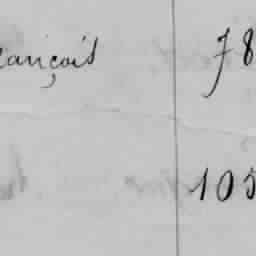 rançois 78
105